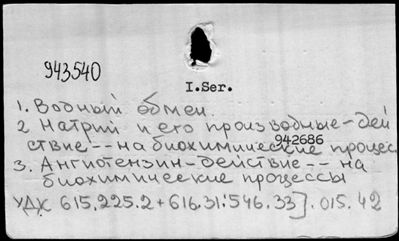 943540
I.Ser.
1. Водный обмен.
2 Натрий и его производные-дей
942686
ствие -- на биохимические процес
3. Ангиотензин-действие -- на
биохимические процессы
УДК 615.225.2+616.31:546.33].015.42